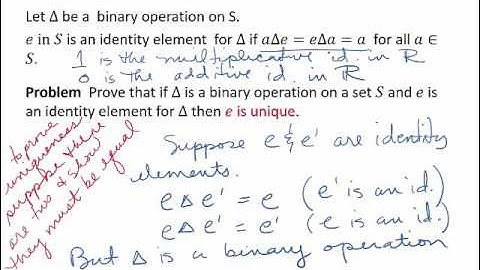 Let Δ be a binary operation on S.
e in S is an identity element for Δ if aΔe = eΔa = a for all a ∈
S. 1 is the multiplicative id. in ℝ
0 is the additive id. in ℝ
Problem Prove that if Δ is a binary operation on a set S and e is
an identity element for Δ then e is unique.
to prove
uniqueness
suppose there
are two & show
they must be equal
Suppose e & e' are identity
elements.
e Δ e' = e (e' is an id.)
e Δ e' = e' (e is an id.)
But Δ is a binary operation